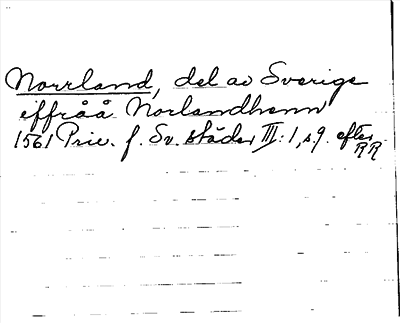 Norrland, del av Sverige
effråå Norlandhenn
1561 Priv. f. Sv. städer III:1, s. 9. efter
RR